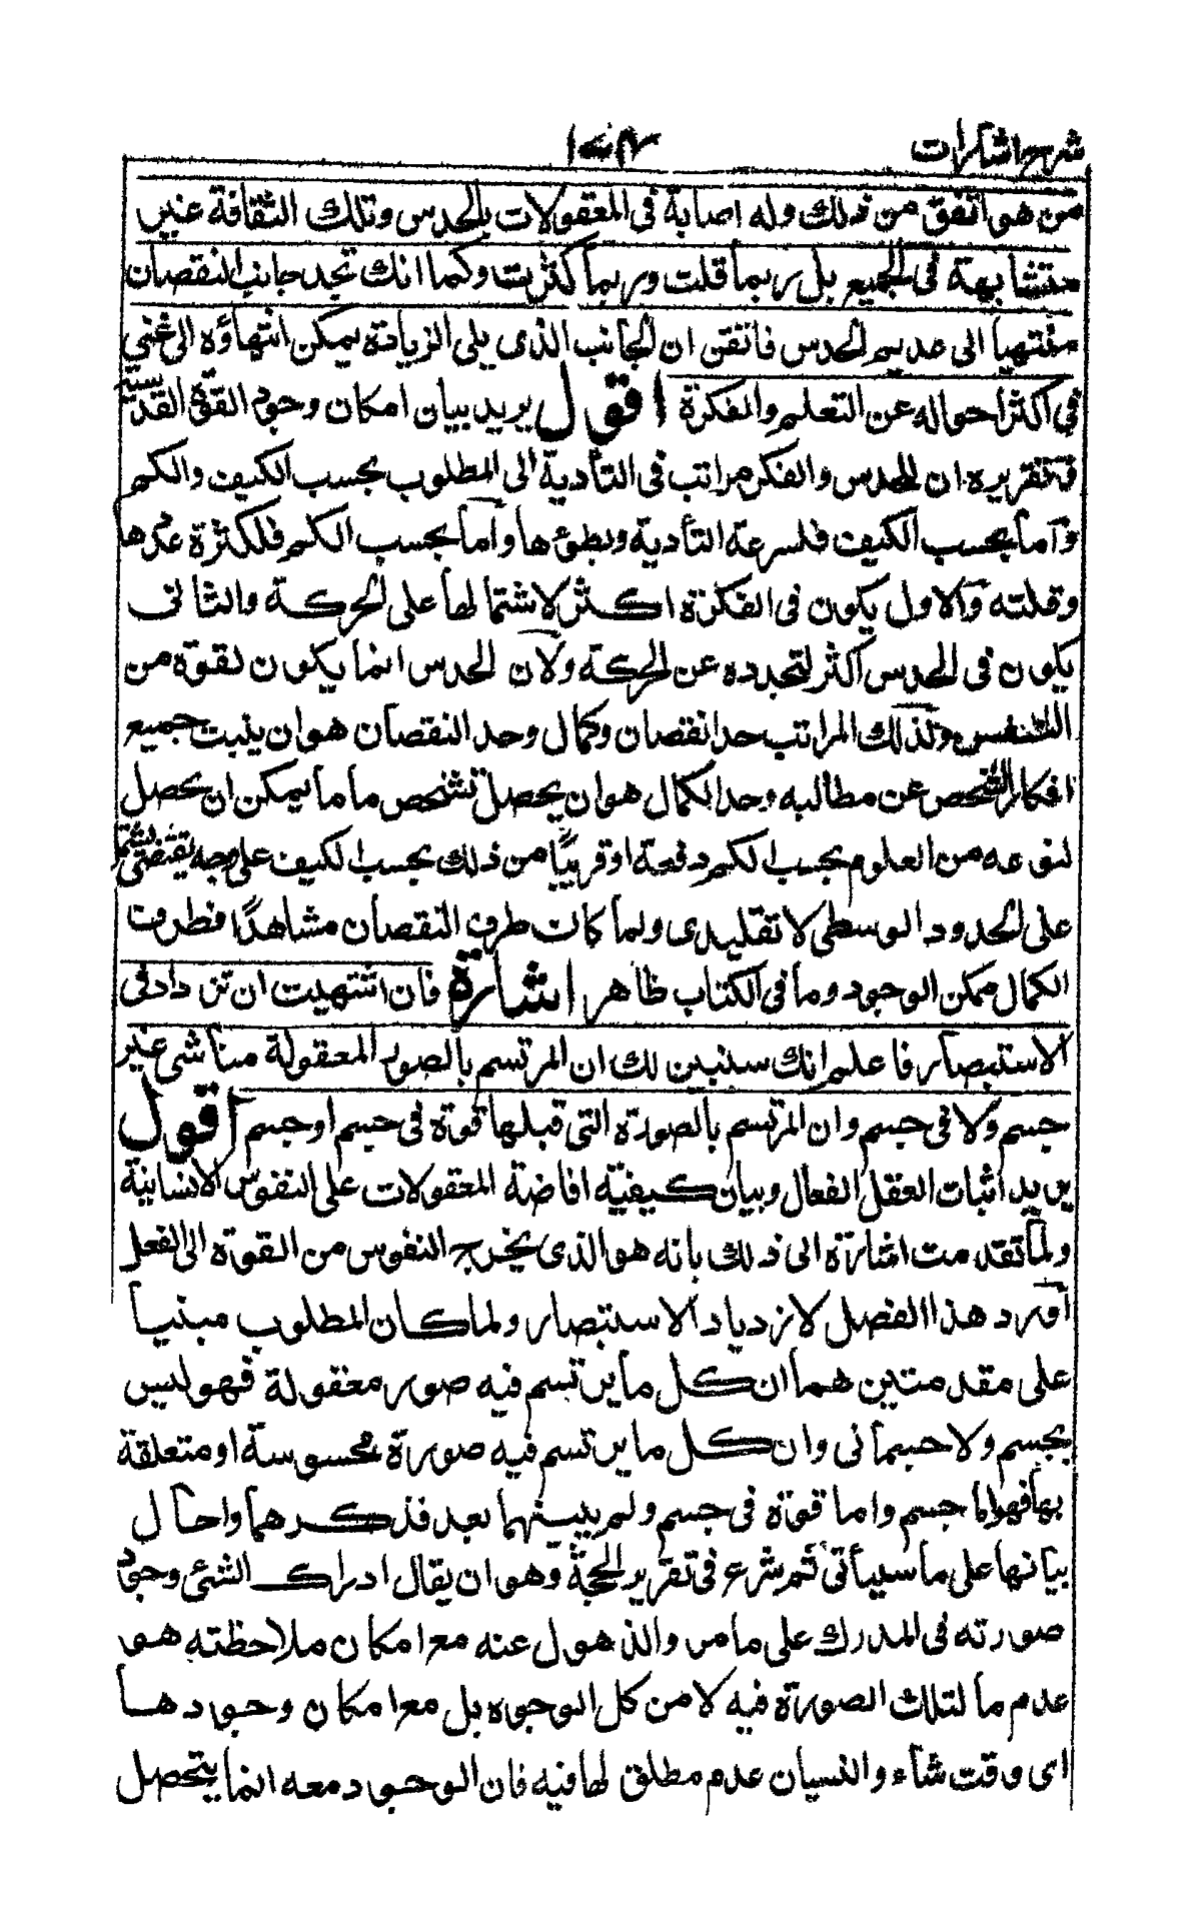 شرح اشارات
من هو اثقف من ذلك وله اصابة فى المعقولات بالحدس وتلك الثقافة غير
متشابهة فى الجميع بل ربما قلت وربما كثرت وكما انك تجد جانب النقصان
منتهيا الى عديم الحدس فايقن ان الجانب الذى يلى الزيادة يمكن انتهاؤه الى غنى
فى اكثر احواله عن التعلم والفكرة اقول يريد بيان امكان وجود القوة القدسية
وتقريره ان للحدس والفكر مراتب فى التأدية الى المطلوب بحسب الكيف والكم
واما بحسب الكيف فلسرعة التأدية وبطؤها واما بحسب الكم فلكثرة عددها
وقلته والاول يكون فى الفكرة اكثر لاشتمالها على الحركة والثانى
يكون فى الحدس اكثر لتجرده عن الحركة ولان الحدس انما يكون لقوة من
النفس ولذلك المراتب حد انقصان وكمال وحد النقصان هو ان ينبت جميع
افكار الشخص عن مطالبه وحد الكمال هو ان يحصل لشخص ما ما يمكن ان يحصل
لنوعه من العلوم بحسب الكم دفعة او قريبًا من ذلك بحسب الكيف على وجه يقتضى يشتمل
على الحدود الوسطى لا تقليدى ولما كان طرف النقصان مشاهدًا فطرف
الكمال ممكن الوجود وما فى الكتاب ظاهر اشارة فان اشتهيت ان تزداد فى
الاستبصار فاعلم انك سنبين لك ان المرتسم بالصور المعقولة منا شى غير
جسم ولا فى جسم وان المرتسم بالصورة التى قبلها قوة فى جسم او جسم اقول
يريد اثبات العقل الفعال وبيان كيفية افاضة المعقولات على النفوس الانسانية
ولما تقدمت اشارة الى ذلك بانه هو الذى يخرج النفوس من القوة الى الفعل
اورد هذا الفصل لازدياد الاستبصار ولما كان المطلوب مبنيا
على مقدمتين هما ان كل ما يرتسم فيه صور معقولة فهو ليس
بجسم ولا جسمانى وان كل ما يرتسم فيه صورة محسوسة او متعلقة
بها فهو اما جسم واما قوة فى جسم ولم يبينهما بعد فذكرهما واحال
بيانها على ما سيأتى ثم شرع فى تقرير الحجة وهو ان يقال ادراك الشئ وجود
صورته فى المدرك على ما مر والذهول عنه مع امكان ملاحظته هو
عدم ما لتلك الصورة فيه لا من كل الوجوه بل مع امكان وجودها
اى وقت شاء والنسيان عدم مطلق لها فيه فان الوجود معه انما يتحصل